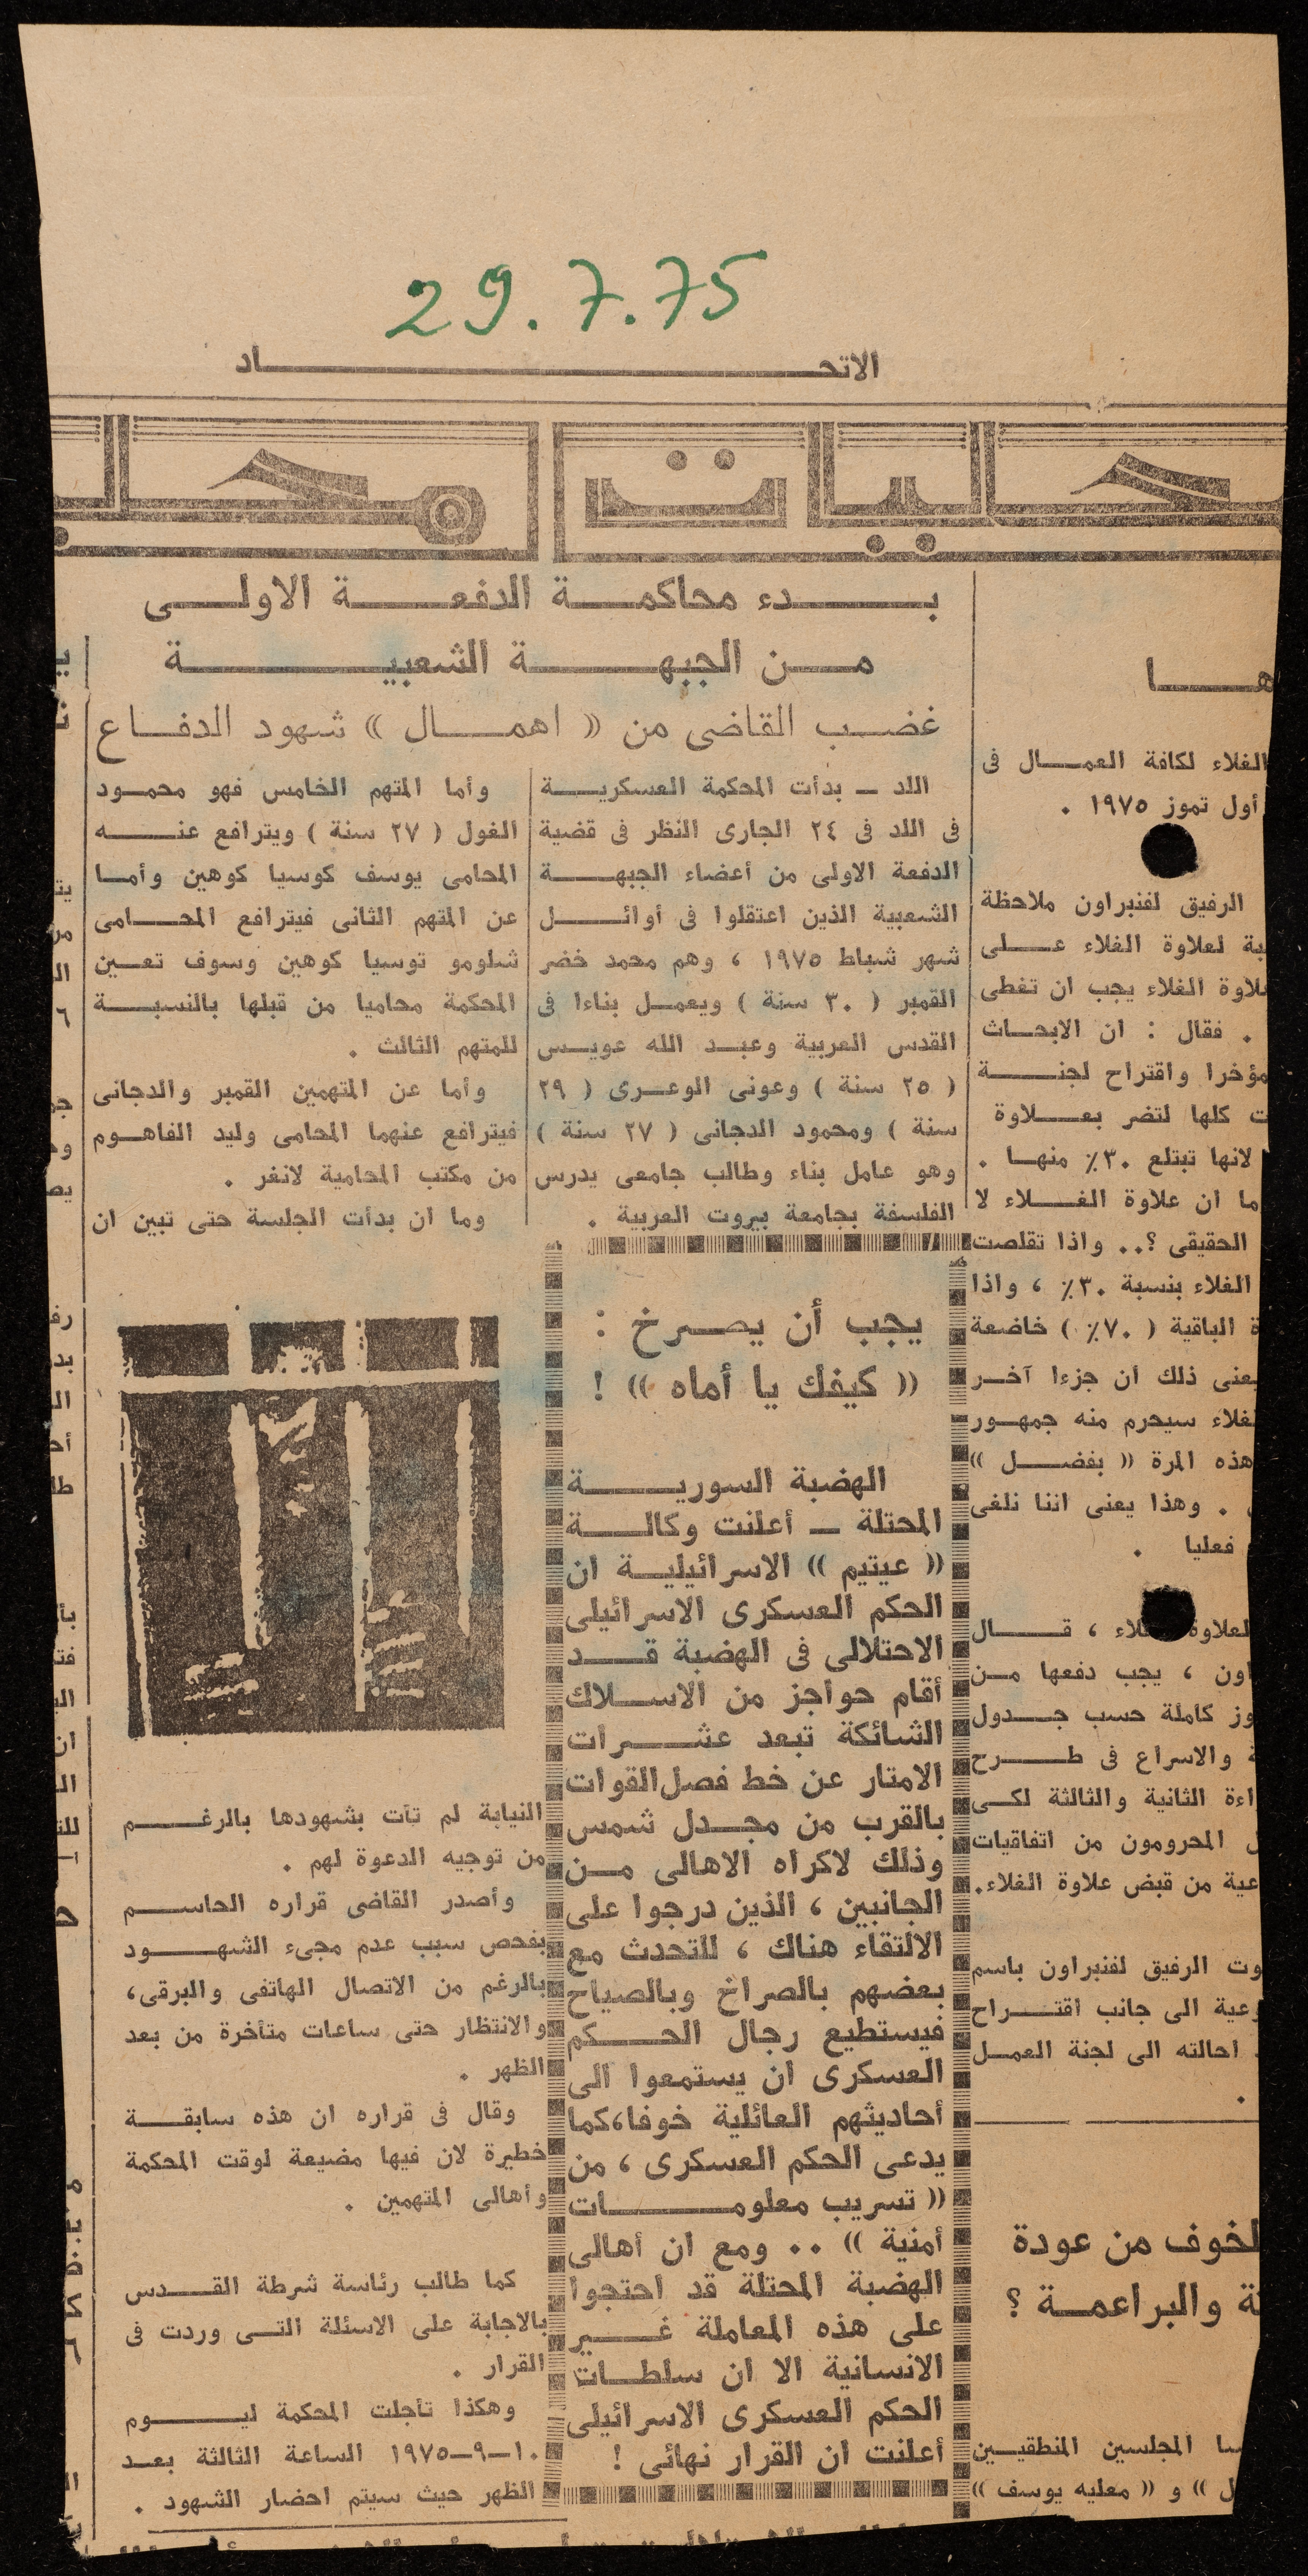 29.7.75
الاتحـــاد
محليات محلـ
بـــدء محاكمـــة الدفعـــة الاولـــى
مـــن الجبهـــة الشعبيـــة
غضـب القاضى من (( اهمـــال )) شهود الدفـــاع
اللد ــ بدأت المحكمة العسكريـــة
فى اللد فى ٢٤ الجارى النظر فى قضية
الدفعة الاولى من أعضاء الجبهـــة
الشعبية الذين اعتقلوا فى أوائـــل
شهر شباط ١٩٧٥ ، وهم محمد خضر
القمبر ( ٣٠ سنة ) ويعمـل بناءا فى
القدس العربية وعبـد الله عويـس
( ٢٥ سنة ) وعونى الوعـرى ( ٢٩
سنة ) ومحمود الدجانى ( ٢٧ سنة )
وهو عامل بناء وطالب جامعى يدرس
الفلسفة بجامعة بيروت العربية .
وأما المتهم الخامس فهو محمـود
الغول ( ٢٧ سنة ) ويترافع عنـــه
المحامى يوسف كوسيا كوهين وأمـا
عن المتهم الثانى فيترافع المحـــامى
شلومو توسيا كوهين وسوف تعـين
المحكمة محاميا من قبلها بالنسبـــة
للمتهم الثالث .
وأما عن المتهمين القمبر والدجانى
فيترافع عنهما المحامى وليد الفاهـوم
من مكتب المحامية لانغر .
وما ان بدأت الجلسة حتى تبين ان
النيابة لم تأت بشهودها بالرغـــم
من توجيه الدعوة لهم .
وأصدر القاضى قراره الحاســم
بفحص سبب عدم مجىء الشهـــود
بالرغم من الاتصال الهاتفى والبرقى،
والانتظار حتى ساعات متأخرة من بعد
الظهر .
وقال فى قراره ان هذه سابقـــة
خطيرة لان فيها مضيعة لوقت المحكمة
وأهالى المتهمين .
كما طالب رئاسة شرطة القـــدس
بالاجابة على الاسئلة التـى وردت فى
القرار .
وهكذا تأجلت المحكمة ليـــوم
١٠-٩-١٩٧٥ الساعة الثالثة بعـد
الظهر حيث سيتم احضار الشهود .
يجب أن يصـرخ :
(( كيفك يا أماه )) !
الهضبة السوريـــة
المحتلة ــ أعلنت وكالـــة
(( عيتيم )) الاسرائيليـة ان
الحكم العسكرى الاسرائيلى
الاحتلالى فى الهضبة قـــد
أقام حواجز من الاسـلاك
الشائكة تبعد عشـــرات
الامتار عن خط فصل القوات
بالقرب من مجـدل شمس
وذلك لاكراه الاهالى مـن
الجانبين ، الذين درجوا على
الالتقاء هناك ، للتحدث مع
بعضهم بالصراخ وبالصياح
فيستطيع رجال الحـــكم
العسكرى ان يستمعوا الى
أحاديثهم العائلية خوفا،كما
يدعى الحكم العسكرى ، من
(( تسريب معلومـــات
أمنية )) .. ومع ان أهالى
الهضبة المحتلة قد احتجوا
على هذه المعاملة غـــير
الانسانية الا ان سلطـات
الحكم العسكرى الاسرائيلى
أعلنت ان القرار نهائى !
هـــا
الغلاء لكافة العمـــال فى
أول تموز ١٩٧٥ .
الرفيق لفنبراون ملاحظة
بة لعلاوة الغلاء عـــلى
علاوة الغلاء يجب ان تغطى
. فقال : ان الابحـاث
مؤخرا واقتراح لجنـــة
ت كلها لتضر بعـــلاوة
لانها تبتلع ٣٠٪ منهـا .
ما ان علاوة الغـــلاء لا
الحقيقى ؟.. واذا تقلصت
الغلاء بنسبة ٣٠٪ ، واذا
ة الباقية ( ٧٠٪ ) خاضعة
يعنى ذلك ان جزءا آخـر
لغلاء سيحرم منه جمهـور
هذه المرة (( بفضـــل ))
. وهذا يعنى اننا نلغى
فعليا .
لعلاوة لاء ، قـــال
اون ، يجب دفعها مـن
وز كاملة حسب جـــدول
ة والاسراع فى طـــرح
اءة الثانية والثالثة لكـى
ل المحرومون من اتفاقيات
عية من قبض علاوة الغلاء.
وت الرفيق لفنبراون باسم
وعية الى جانب اقتـــراح
احالته الى لجنة العمـل
.
لخوف من عودة
ة والبراعمـــة ؟
سا المجلسين المنطقيـين
ل )) و (( معليه يوسف ))